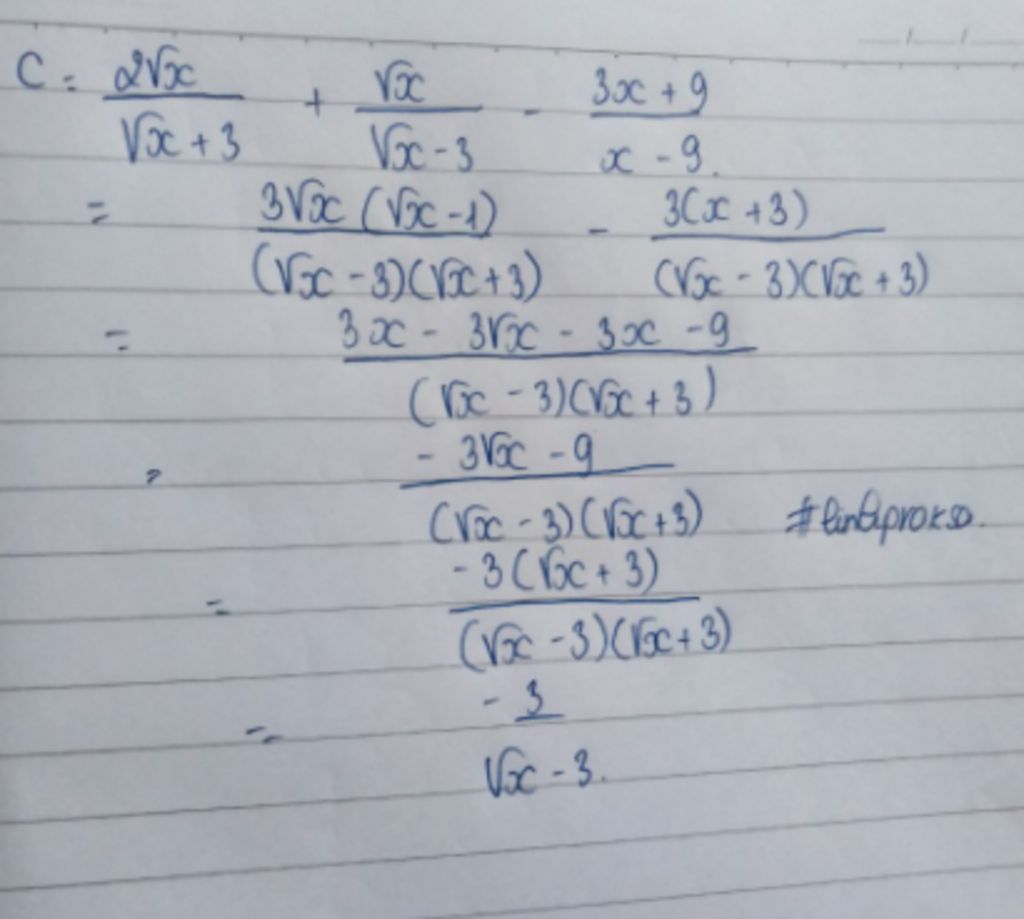 C = 2√x / √x + 3 + √x / √x - 3 - 3x + 9 / x - 9.
= 3√x (√x - 1) / (√x - 3)(√x + 3) - 3(x + 3) / (√x - 3)(√x + 3)
= 3x - 3√x - 3x - 9 / (√x - 3)(√x + 3)
= - 3√x - 9 / (√x - 3)(√x + 3)
= - 3(√x + 3) / (√x - 3)(√x + 3)
= - 3 / √x - 3.